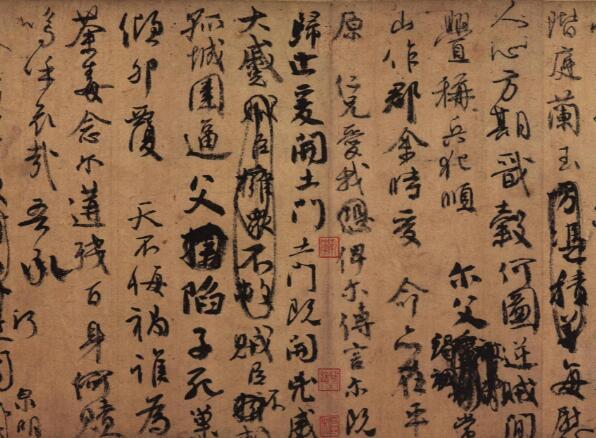 階庭蘭玉方憑積善每慰
人心方期戩穀何圖逆賊閒
釁稱兵犯順 爾父竭誠常
山作郡余時受 命亦在平
原 仁兄愛我恐俾爾傳言爾既
歸止爰開土門土門既開兇威
大蹙賊臣擁衆不救賊臣不
孤城圍逼父陷子死巢
傾卵覆 天不悔禍誰為
荼毒念爾遘殘百身何贖
嗚呼哀哉吾承
泉明